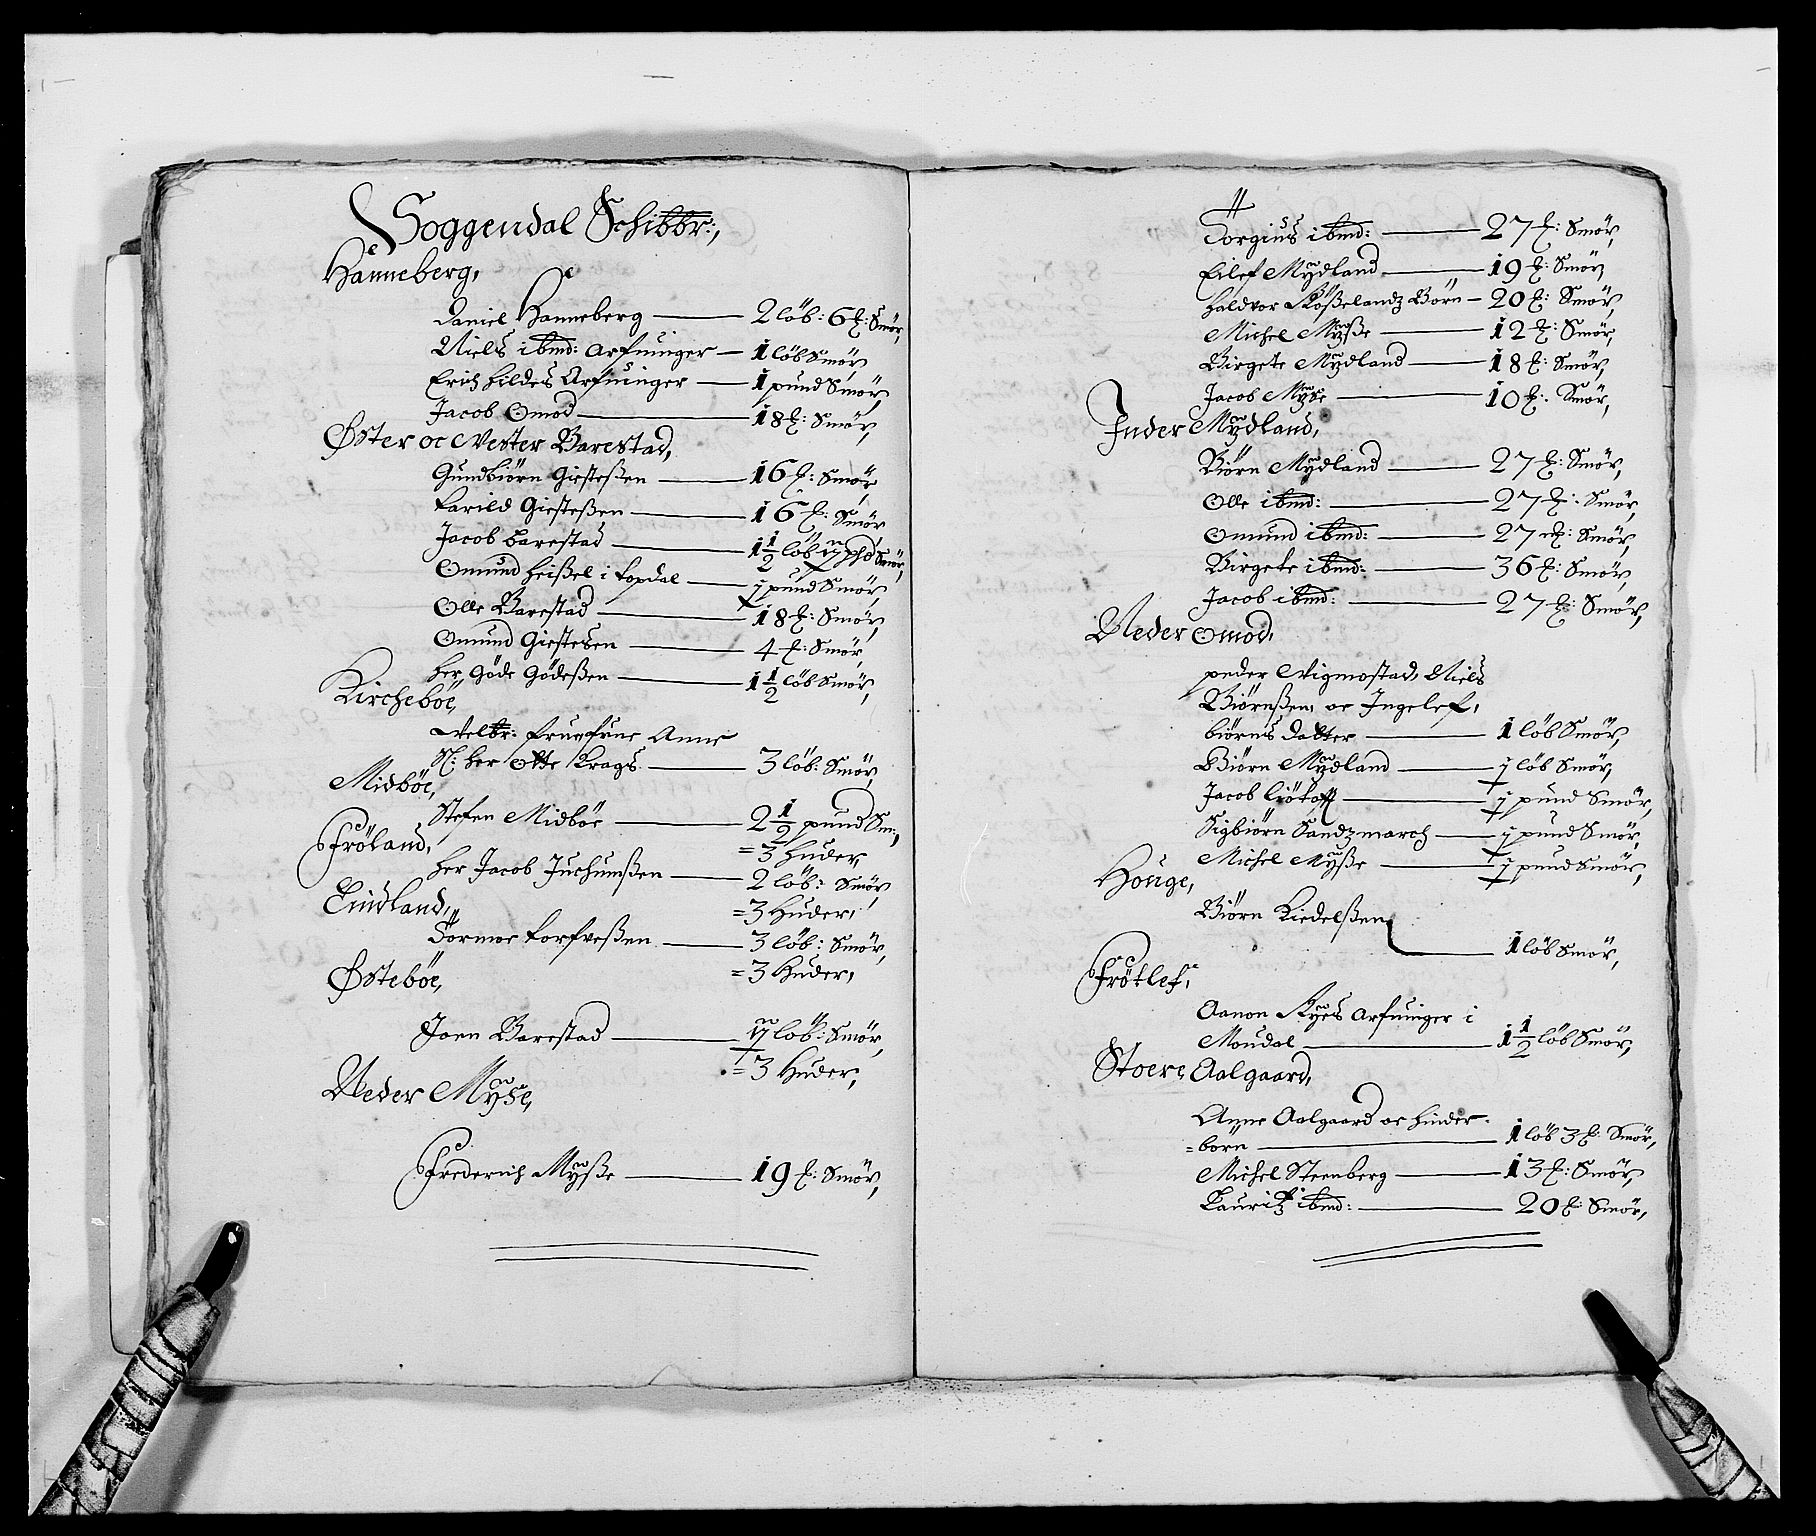 Soggendal Schibbr:,
Hanneberg,
Daniel Hanneberg — 2 löb: 6 ℔: Smör,
Niels ibmd: Arfuinger — 1 löb Smör,
Erich Hildes Arfuinger — 1 pund Smör,
Jacob Omod — 18 ℔: Smör,
Øster oc Vester Barestad,
Gundbiörn Giesteßen — 16 ℔: Smör
Tarild Giesteßen — 16 ℔: Smör
Jacob Barestad — 1 1/2 löb ÿ pd Smör,
Omund Heißel i Topdal — j pund Smör,
Olle Barestad — 18 ℔: Smör,
Omund Giestesen — 4 ℔: Smör,
Her Göde Gödeßen — 1 1/2 löb Smör,
Kircheböe,
Velbr: frue, frue Anne
Sl: Her Otte Krags — 3 löb: Smör,
Midböe,
Stefen Midböe — 2 1/2 pund Sm:,
= 3 Huder,
Fröland,
Her Jacob Juchumßen — 2 löb: Smör
= 3 Huder,
Eindland,
Tormoe Torfveßen — 3 löb: Smör,
= 3 Huder,
Østeböe,
Joen Barestad — ÿ löb: Smör,
= 3 Huder,
Neder Mÿße,
Frederich Mÿße — 19 ℔: Smör,
Torgius ibmd: — 27 ℔: Smör,
Eilef Mÿdland — 19 ℔: Smör
Haldvor Skößelandz Börn — 20 ℔: Smör,
Michel Mÿße — 12 ℔: Smör,
Birgete Mÿdland — 18 ℔: Smör,
Jacob Mÿße — 10 ℔: Smör,
Inder Mÿdland,
Biörn Mÿdland — 27 ℔: Smör,
Olle ibmd: — 27 ℔: Smör,
Omund ibmd: — 27 ℔: Smör,
Birgete ibmd: — 36 ℔: Smör,
Jacob ibmd: — 27 ℔: Smör,
Neder Omod,
peder Vigmostad, Niels
Biörnßen, oc Ingelef,
biörns datter — 1 löb Smör,
Biörn Mÿdland — j löb Smör,
Jacob — j pund Smör,
Sigbiörn Sandzmarch — j pund Smör,
Michel Mÿße — j pund Smör,
Houge,
Biörn Kiedelßen
1 löb Smör,
Frötlef,
Aanon Rÿes Arfuinger i
Moudal — 1 1/2 löb Smör,
Stoere Aalgaard,
Anne Aalgaard oc hinder
= börn — 1 löb 3 ℔: Smör,
Michel Steenberg — 13 ℔: Smör,
Lauritz ibmd: — 20 ℔: Smör,